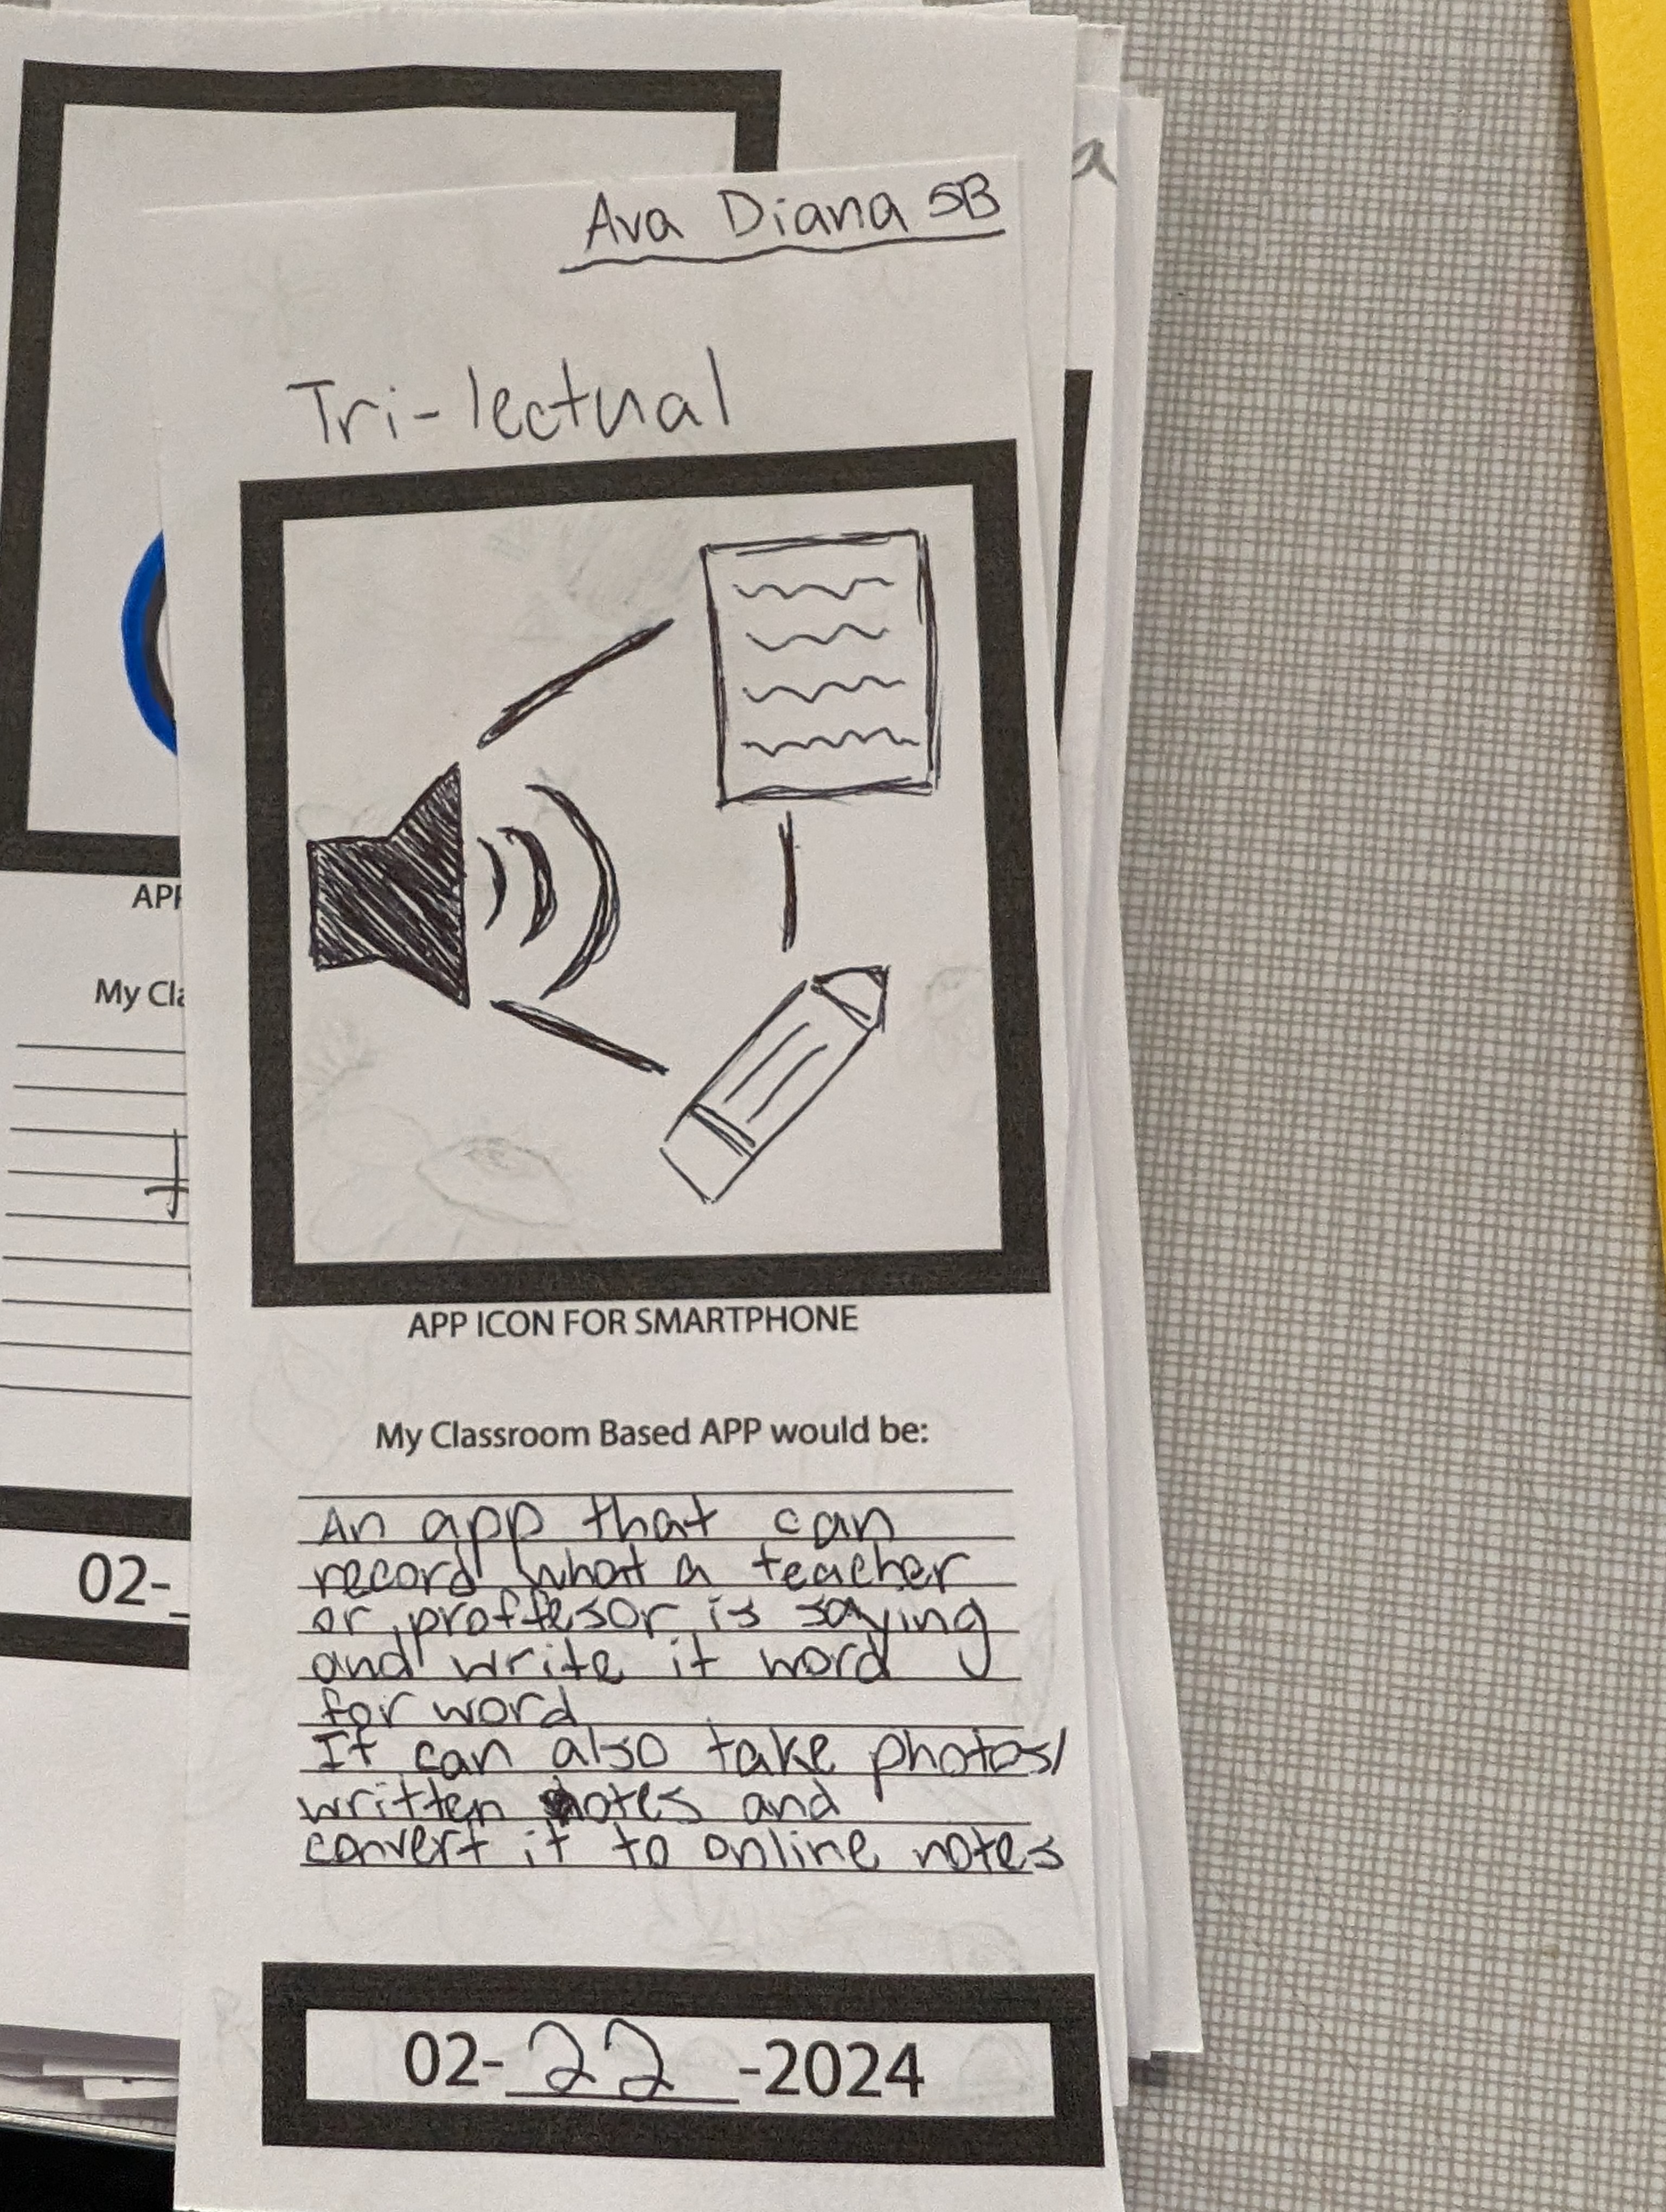 Ava Diana 5B
Tri-lectual
APP ICON FOR SMARTPHONE
My Classroom Based APP would be:
An app that can
record what a teacher
or proffesor is saying
and write it word
for word
It can also take photos/
written notes and
convert it to online notes
02-22-2024
a
APP
My Cla
02-